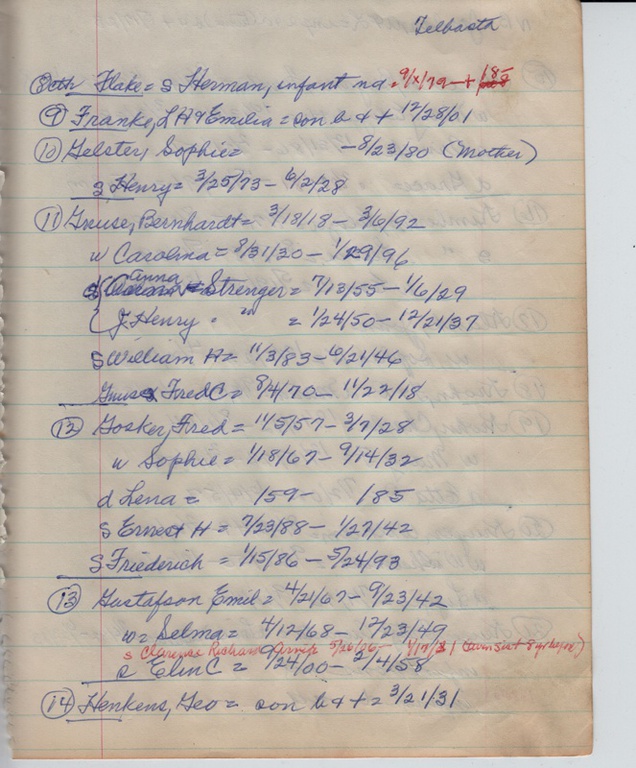 Telbasta
8 cth Flake = s Herman, infant nd. 9/x/79 -+
⑨ Franke, L A & Emilia = son b & + 12/28/01
⑩ Gelster, Sophie = - 8/23/80 (Mother)
s Henry = 3/25/73 - 6/2/28
⑪ Gruse, Bernhardt = 3/18/18 - 3/6/92
w Carolina = 8/31/20 - 1/29/96
Anna Strenger = 7/13/55 - 1/6/29
J. Henry = " = 1/24/50 - 12/21/37
S William H = 11/3/83 - 6/21/46
Gruse Fred C = 8/4/70 - 11/22/18
⑫ Gosker, Fred = 11/5/57 - 3/7/28
w Sophie = 1/18/67 - 9/14/32
d Lena = /59 - /85
S Ernest H = 7/23/88 - 1/27/42
S Friederich = 1/15/86 - 5/24/93
⑬ Gustafson Emil = 4/21/67 - 9/23/42
w = Selma = 4/12/68 - 12/23/49
s Clarence Richard 5/26/06 -
Elin C = 9/24/00 - 2/4/58
⑭ Henkens, Geo = son b & + = 3/21/31